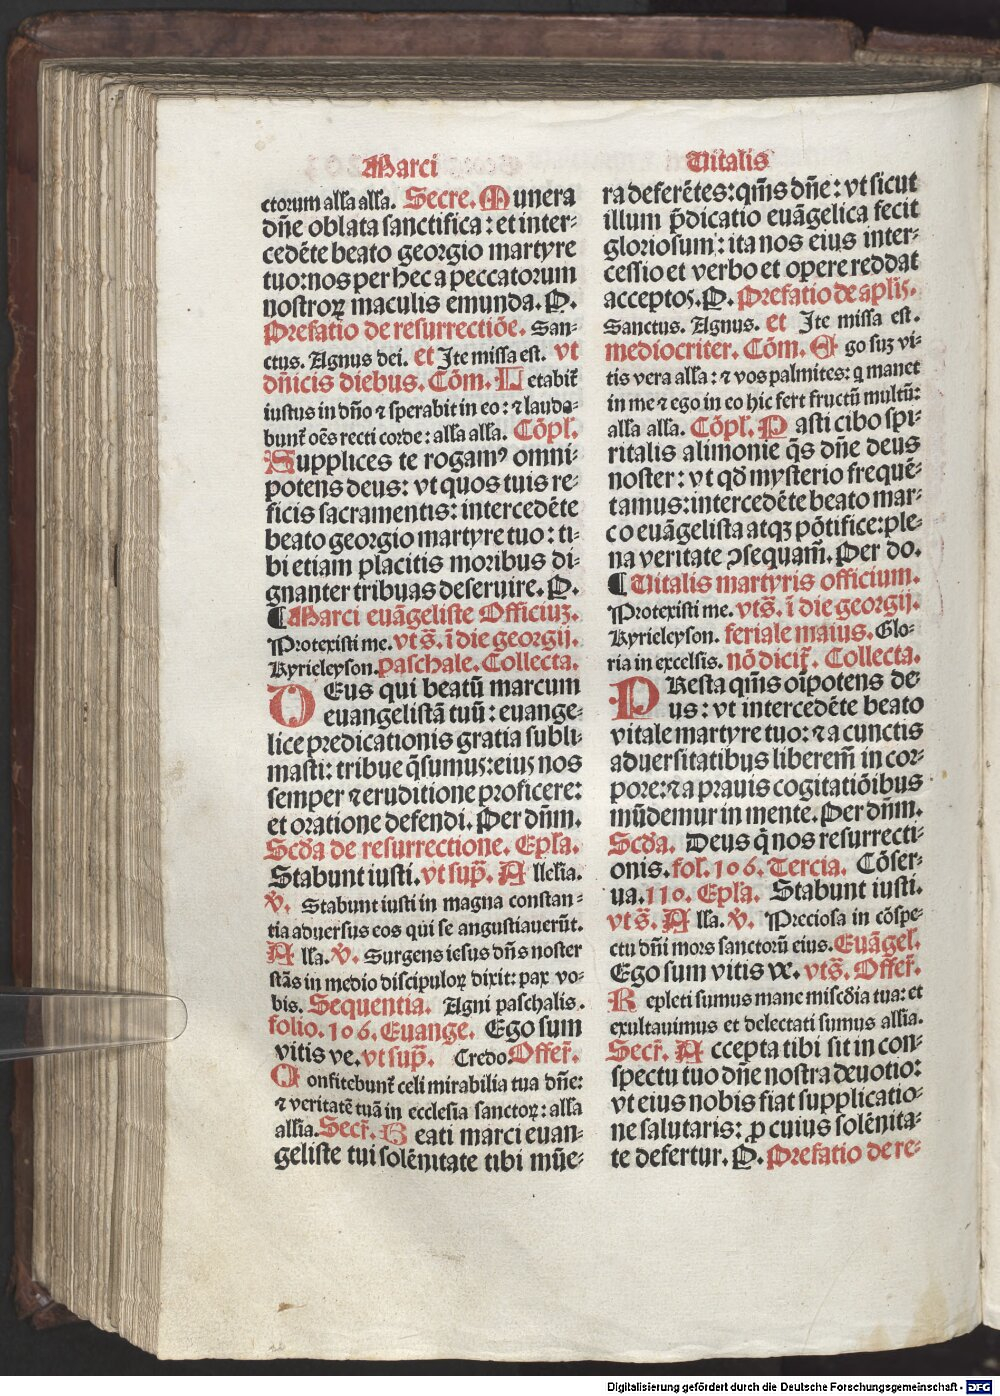 Marci
ctorum alľa alľa. Secre. Munera
dñe oblata sanctifica: et inter⸗
cedẽte beato georgio martyre
tuo: nos per hec a peccatorum
nostroꝝ maculis emunda. P.
Prefatio de resurrectiõe. San⸗
ctus. Agnus dei. et Ite missa est. vt
dñicis diebus. Cõm. Letabit̃
iustus in dño ⁊ sperabit in eo: ⁊ lauda⸗
bunt̃ oẽs recti corde: alľa alľa. Cõpl.
Supplices te rogamꝰ omni⸗
potens deus: vt quos tuis re⸗
ficis sacramentis: intercedẽte
beato georgio martyre tuo: ti⸗
bi etiam placitis moribus di⸗
gnanter tribuas deseruire. P.
¶ Marci euãgeliste Officiuz.
Protexisti me. vt s̃. ĩ die georgij.
Kyrieleyson. paschale. Collecta.
DEus qui beatũ marcum
euangelistã tuũ: euange⸗
lice predicationis gratia subli⸗
masti: tribue q̃sumus: eius nos
semper ⁊ eruditione proficere:
et oratione defendi. Per dñm.
Scďa de resurrectione. Epľa.
Stabunt iusti. vt sup̃. Alleľia.
℣. Stabunt iusti in magna constan⸗
tia aduersus eos qui se angustiauerũt.
Alľa. ℣. Surgens iesus dñs noster
stãs in medio discipuloꝝ dixit: pax vo⸗
bis. Sequentia. Agni paschalis.
folio. 106. Euange. Ego sum
vitis ve. vt sup̃. Credo. Offer̃.
Confitebunt̃ celi mirabilia tua dñe:
⁊ veritatẽ tuã in ecclesia sanctoꝝ: alľa
alľia. Secr̃. Beati marci euan⸗
geliste tui solẽnitate tibi mũe⸗
Vitalis
ra deferẽtes: qm̃s dñe: vt sicut
illum p̃dicatio euãgelica fecit
gloriosum: ita nos eius inter⸗
cessio et verbo et opere reddat
acceptos. P. Prefatio de aplis̃.
Sanctus. Agnus. et Ite missa est.
mediocriter. Cõm. Ego suz vi⸗
tis vera alľa: ⁊ vos palmites: q manet
in me ⁊ ego in eo hic fert fructũ multũ:
alľa alľa. Cõpl. Pasti cibo spi⸗
ritalis alimonie q̃s dñe deus
noster: vt qď mysterio frequẽ⸗
tamus: intercedẽte beato mar⸗
co euãgelista atqꝫ põtifice: ple⸗
na veritate ꝯsequam̃. Per do.
¶ Vitalis martyris officium.
Protexisti me. vt s̃. ĩ die georgij.
Kyrieleyson. feriale maius. Glo⸗
ria in excelsis. nõ dicit̃. Collecta.
PResta qm̃s oĩpotens de⸗
us: vt intercedẽte beato
vitale martyre tuo: ⁊ a cunctis
aduersitatibus liberem̃ in cor⸗
pore: ⁊ a prauis cogitatiõibus
mũdemur in mente. Per dñm.
Scďa. Deus q̃ nos resurrecti⸗
onis. fol. 106. Tercia. Cõser⸗
ua. 110. Epľa. Stabunt iusti.
vt s̃. Alľa. ℣. Preciosa in cõspe⸗
ctu dñi mors sanctorũ eius. Euãgel.
Ego sum vitis vẽ. vt s̃. Offer̃.
Repleti sumus mane miscďia tua: et
exultauimus et delectati sumus alľia.
Secr̃. Accepta tibi sit in con⸗
spectu tuo dñe nostra deuotio:
vt eius nobis fiat supplicatio⸗
ne salutaris: ꝓ cuius solẽnita⸗
te defertur. P. Prefatio de re⸗
Digitalisierung gefördert durch die Deutsche Forschungsgemeinschaft - DFG